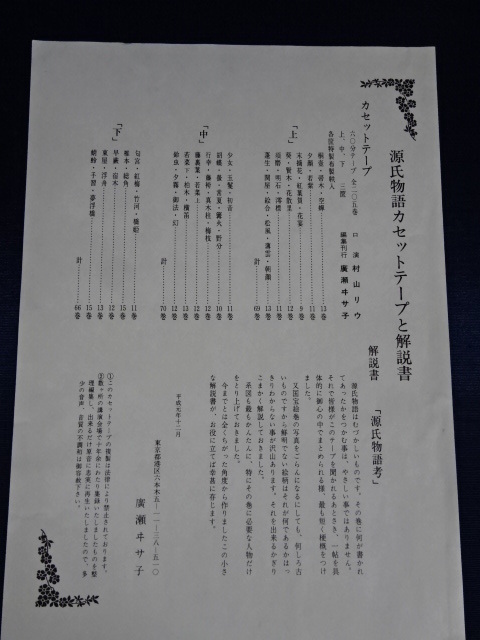 源氏物語カセットテープと解説書
カセットテープ
六〇分テープ 全二〇五巻 口演 村山リウ
各箱特製布製帙入
上、中、下 編集刊行 廣瀬ヰサ子
「上」
桐壺・帚木・空蝉 13巻
夕顔・若紫 11巻
末摘花・紅葉賀・花宴 9巻
葵・賢木・花散里 12巻
須磨・明石・澪標 11巻
蓬生・関屋・絵合・松風・薄雲・朝顔 13巻
計 69巻
「中」
少女・玉鬘・初音 11巻
胡蝶・螢・常夏・篝火・野分 10巻
行幸・藤袴・真木柱・梅枝 12巻
藤裏葉・若菜上 12巻
若菜下・柏木・横笛 13巻
鈴虫・夕霧・御法・幻 12巻
計 70巻
「下」
匂宮・紅梅・竹河・橋姫 11巻
椎本・総角 15巻
早蕨・宿木 12巻
東屋・浮舟 13巻
蜻蛉・手習・夢浮橋 15巻
計 66巻
解説書 「源氏物語考」
源氏物語はむつかしいものです。その巻に何が書かれ
てあったかをつかむ事は、やさしい事ではありません。
それで皆様がこのテープを聞かれるあとさき、一帖を具
体的に御心の中でまとめられる様、最も短く梗概をつけ
ました。
又国宝絵巻の写真をごらんになるにしても、何しろ古
いものですから鮮明でない絵柄はそれが何であるかはっ
きりわからない事が沢山あります。それを出来るかぎり
こまかく解説しておきました。
系図も最もかんたんに、特にその巻に必要な人物だけ
をとり上げておきました。
今までとは全くちがった角度から作りましたこの小さ
な解説書が、お役に立てば幸甚に存じます。
平成元年十二月
東京都港区六本木五―一―三八―五一〇
廣瀬ヰサ子
①このカセットテープの複製は法律により禁止されております。
②数ヶ所の講演会場で十年余にわたり集録いたしましたものを整
理編集し、出来るだけ原音に忠実に再生いたしましたので、多
少の音声、音質の不調和は御容赦下さい。